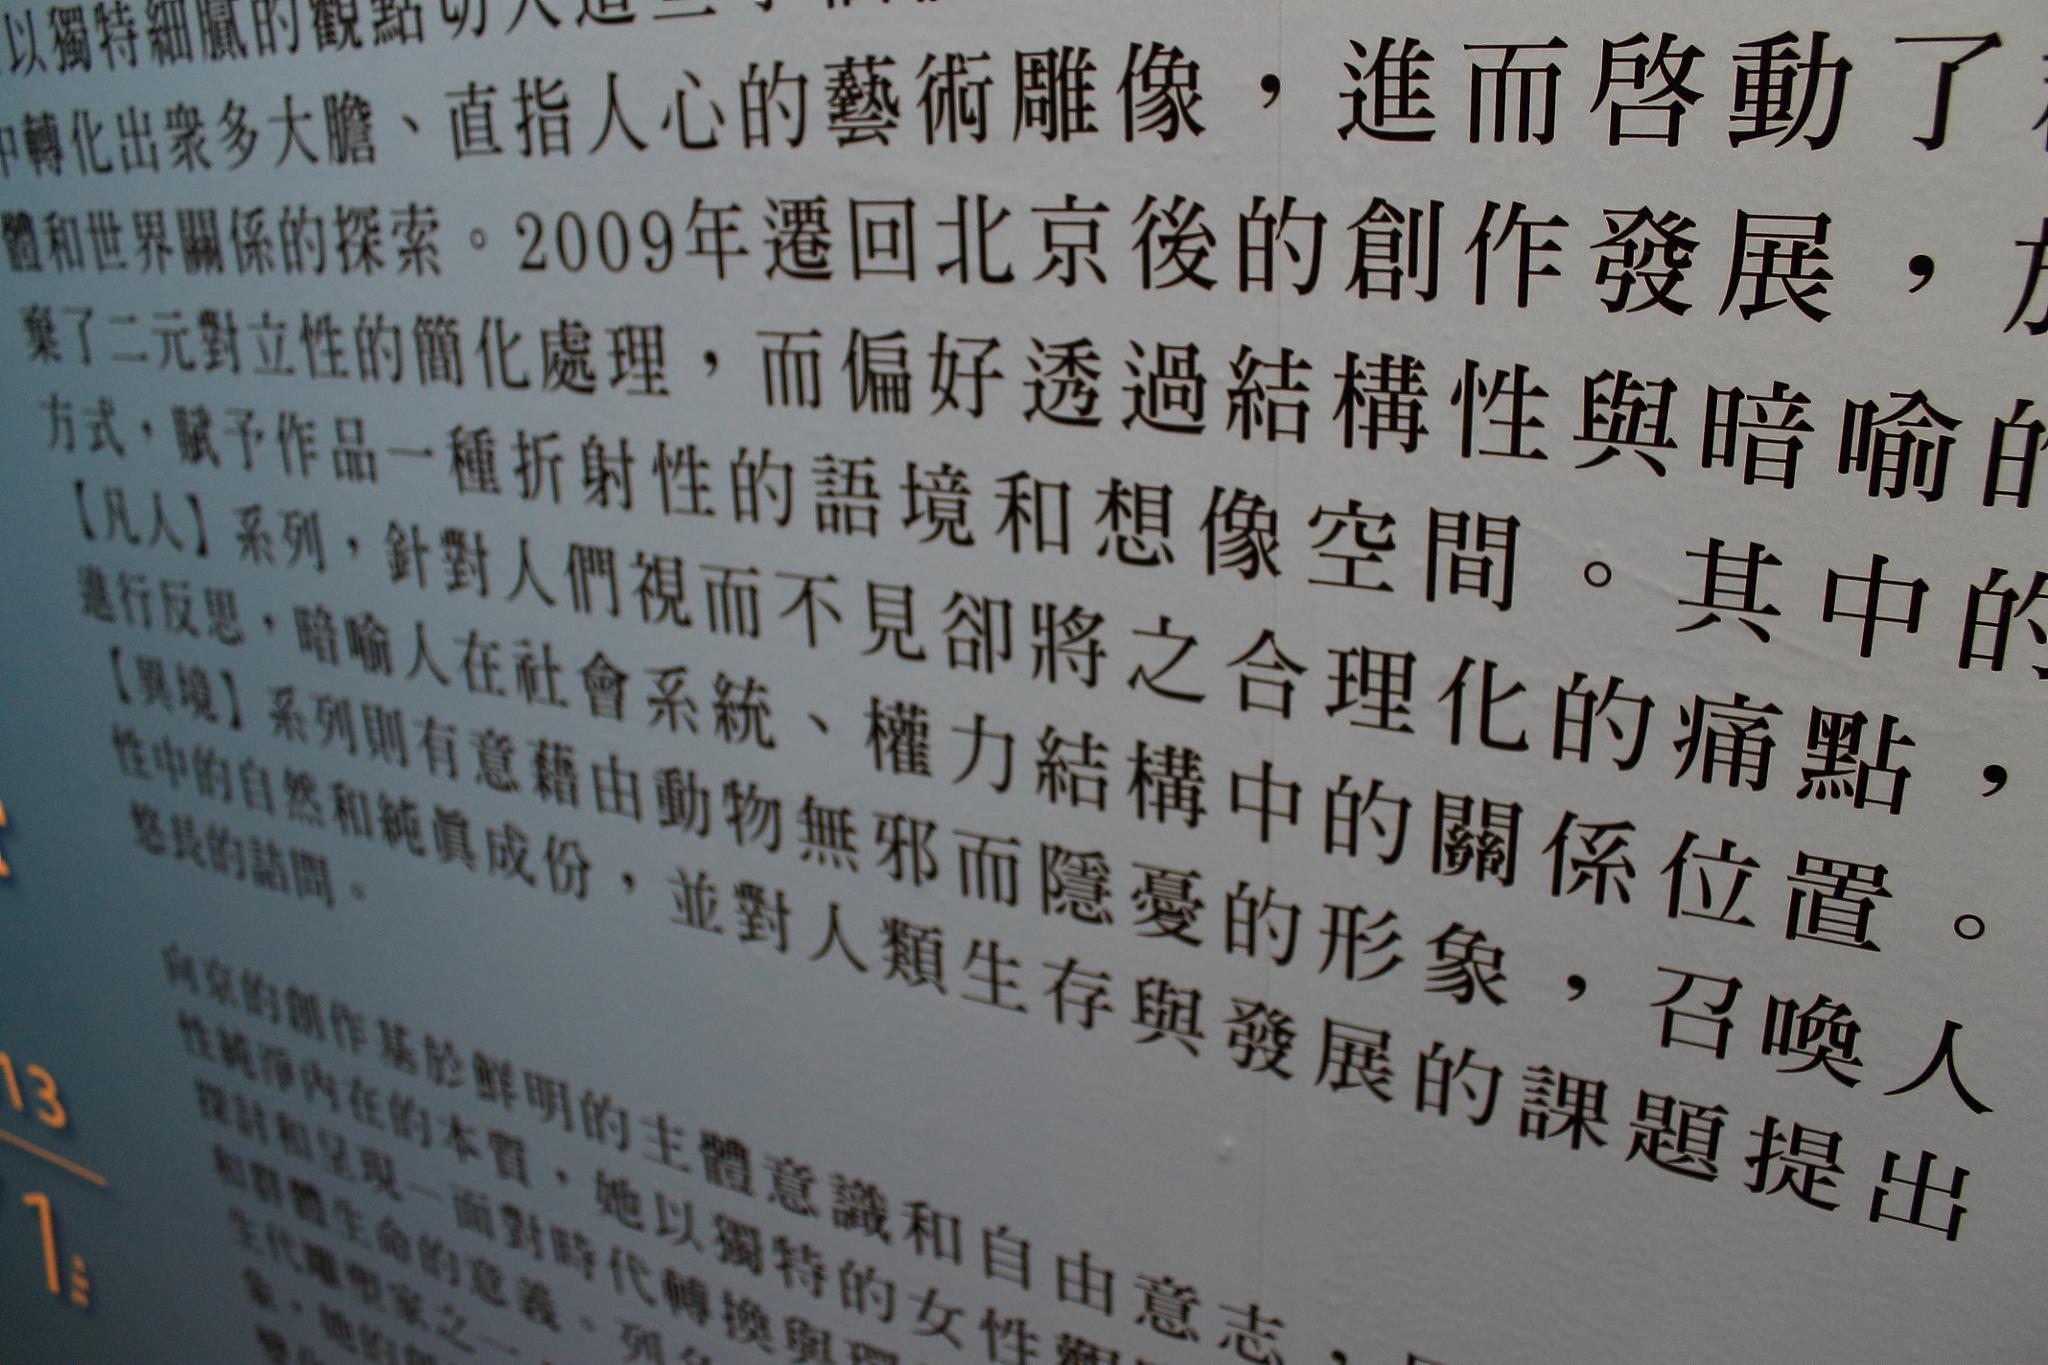 以獨特細膩的觀點切入這
中轉化出衆多大膽、直指人心的藝術雕像，進而啓動了
體和世界關係的探索。2009年遷回北京後的創作發展，
棄了二元對立性的簡化處理，而偏好透過結構性與暗喻的
方式，賦予作品一種折射性的語境和想像空間。其中的
【凡人】系列，針對人們視而不見卻將之合理化的痛點，
進行反思，暗喻人在社會系統、權力結構中的關係位置。
【異境】系列則有意藉由動物無邪而隱憂的形象，召喚人
性中的自然和純眞成份，並對人類生存與發展的課題提出
悠長的詰問。
向京的創作基於鮮明的主體意識和自由意志，
性純淨內在的本質，她以獨特的女性觀
探討和呈現一面對時代轉換與環
和群體生命的意義。列
生代雕塑家之一
象，她的創
13
1